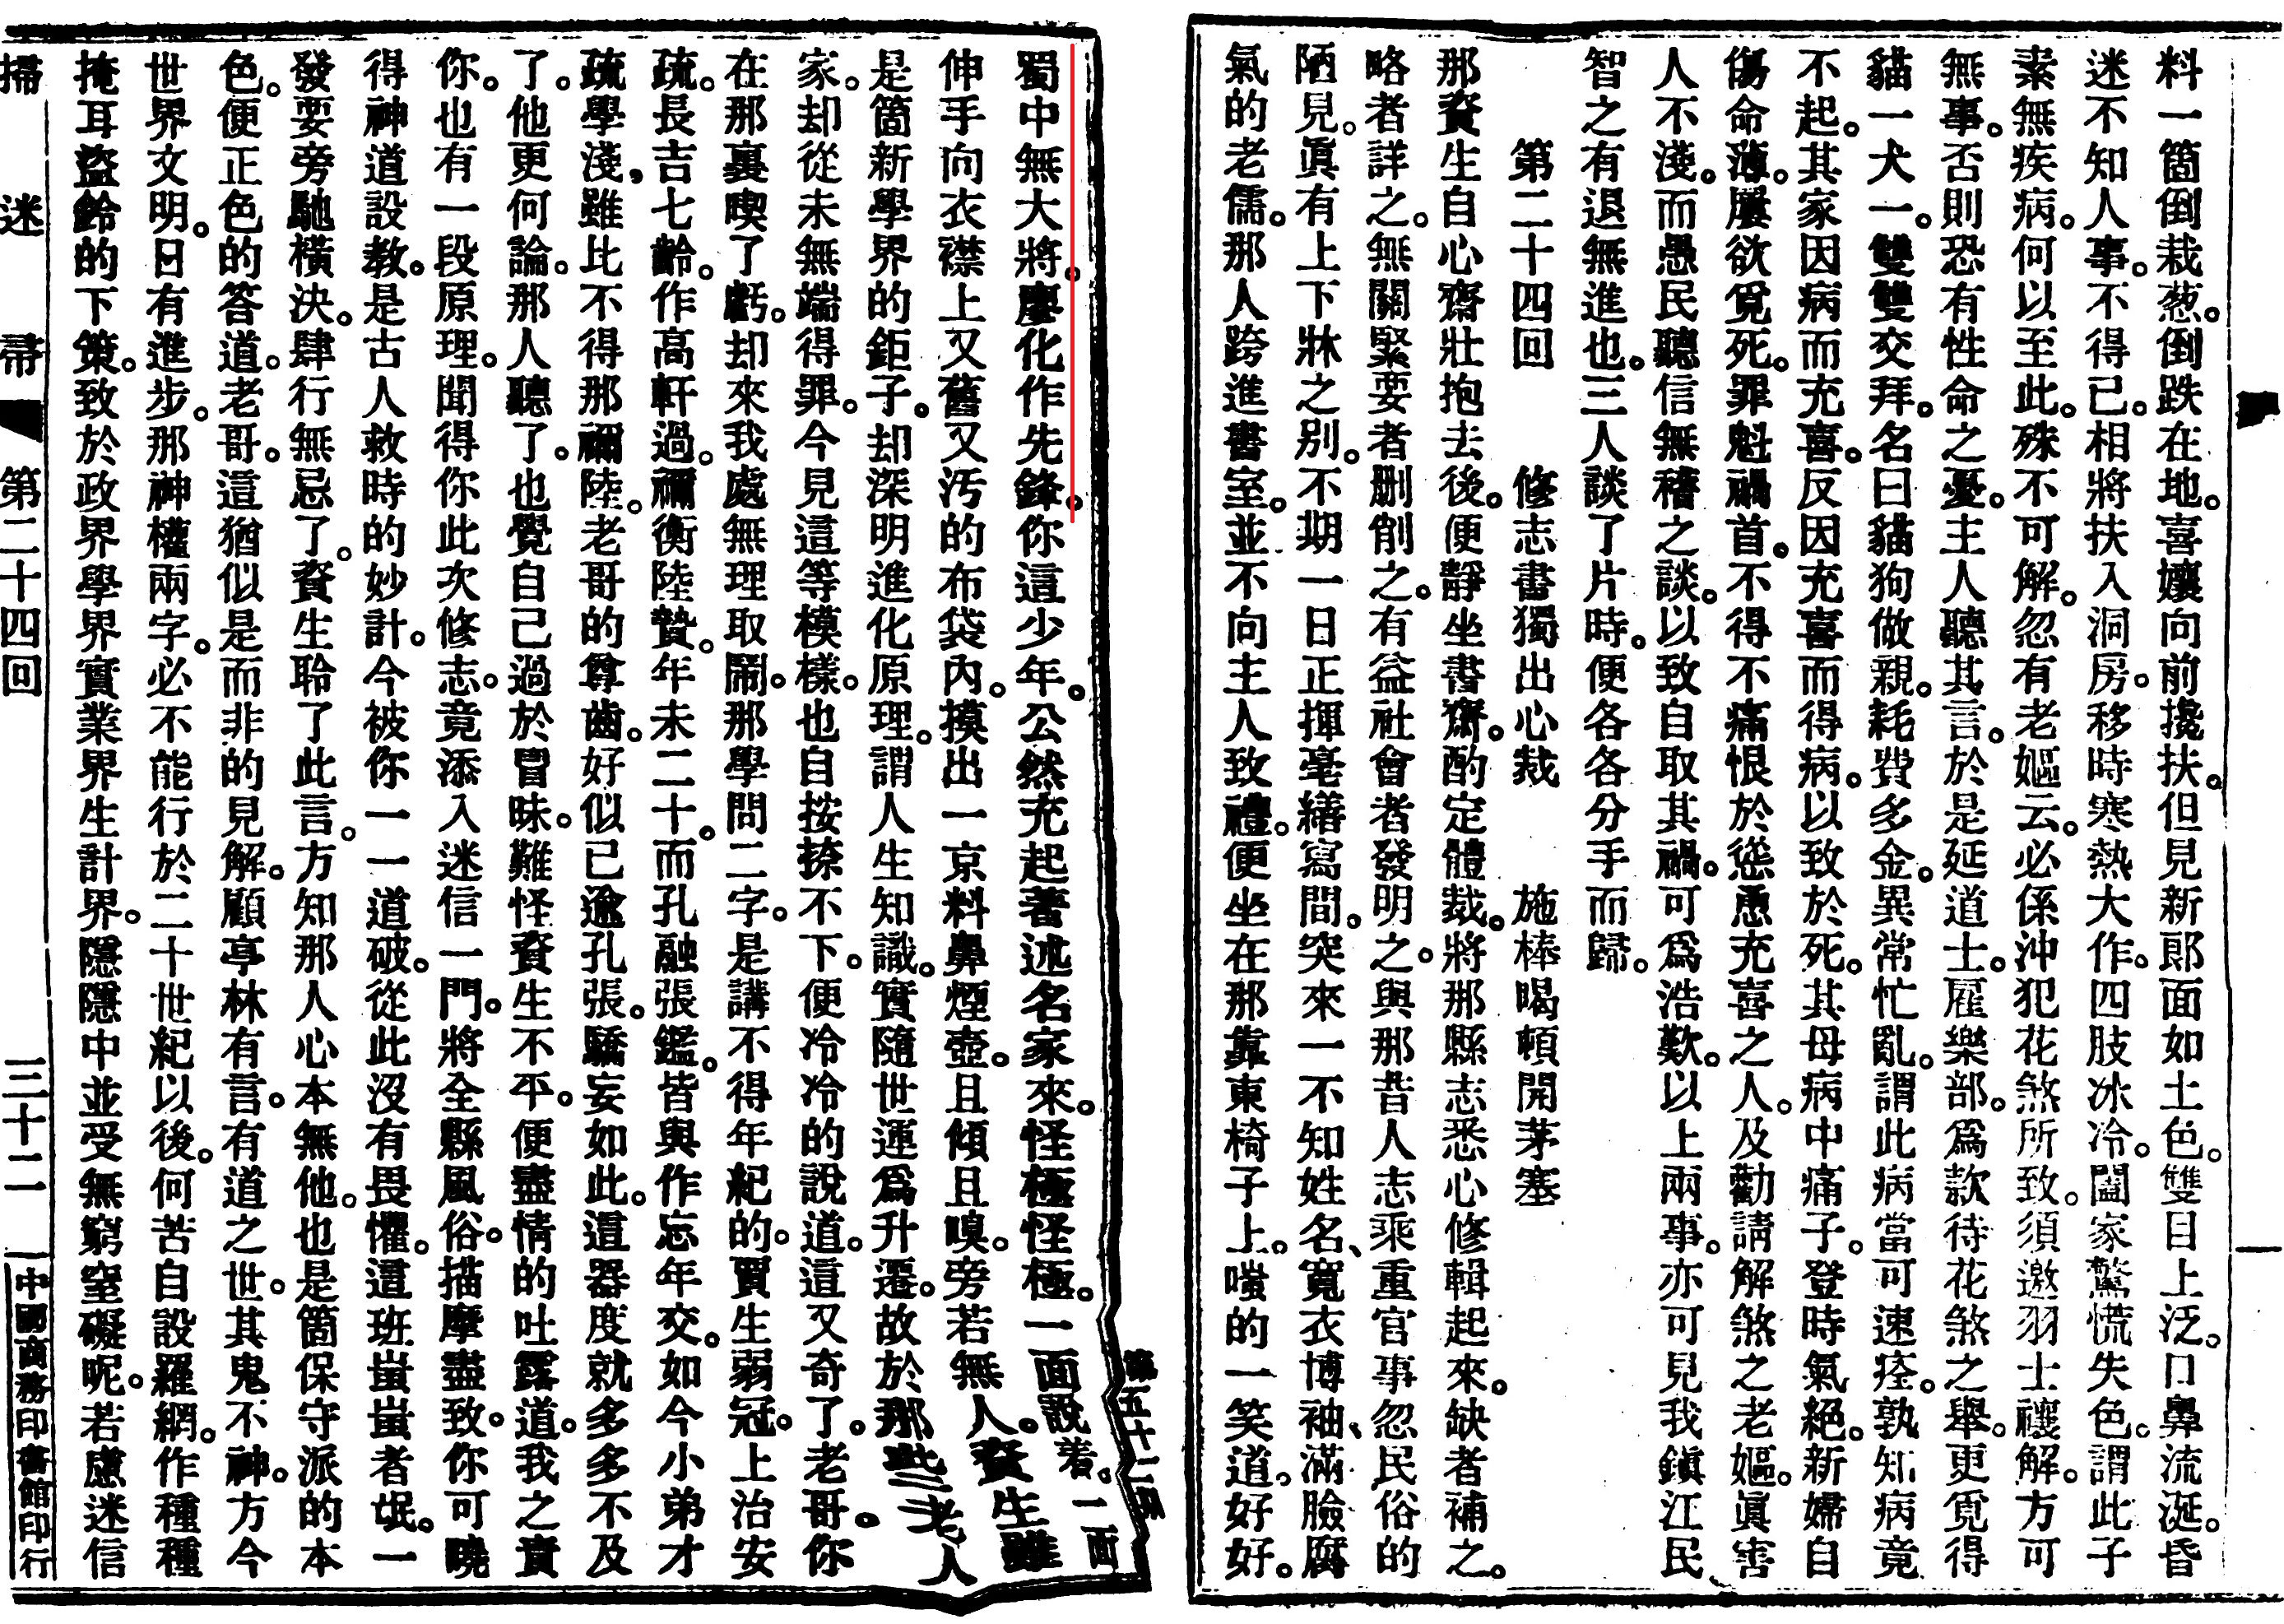 料一箇倒栽葱。倒跌在地。喜孃向前攙扶。但見新郎面如土色。雙目上泛。口鼻流涎。昏
迷不知人事。不得已。相將扶入洞房。移時寒熱大作。四肢冰冷。闔家驚慌失色。謂此子
素無疾病。何以至此。殊不可解。忽有老嫗云。必係沖犯花煞所致。須邀羽士禳解。方可
無事。否則恐有性命之憂。主人聽其言。於是延道士。雇樂部。爲款待花煞之舉。更覓得
貓一犬一。雙雙交拜。名曰貓狗做親。耗費多金。異常忙亂。謂此病當可速痊。孰知病竟
不起。其家因病而充喜。反因充喜而得病。以致於死。其母病中痛子。登時氣絕。新婦自
傷命薄。屢欲覓死。罪魁禍首。不得不痛恨於慫恿充喜之人。及勸請解煞之老嫗。眞害
人不淺。而愚民聽信無稽之談。以致自取其禍。可爲浩歎。以上兩事。亦可見我鎭江民
智之有退無進也。三人談了片時。便各各分手而歸。
第二十四回　修志書獨出心裁　施棒喝頓開茅塞
那資生自心齋壯抱去後。便靜坐書齋。酌定體裁。將那縣志悉心修輯起來。缺者補之。
略者詳之。無關緊要者刪削之。有益社會者發明之。與那昔人志乘重官事忽民俗的
陋見。眞有上下牀之別。不期一日正揮毫繕寫間。突來一不知姓名、寬衣博袖、滿臉腐
氣的老儒。那人跨進書室。並不向主人致禮。便坐在那靠東椅子上。嗤的一笑道。好好。
蜀中無大將。廖化作先鋒。你這少年。公然充起著述名家來。怪極怪極。一面說着。一面
伸手向衣襟上又舊又汚的布袋內。摸出一京料鼻煙壺。且傾且嗅。旁若無人。資生雖
是箇新學界的鉅子。却深明進化原理。謂人生知識。實隨世運爲升遷。故於那些老人
家。却從未無端得罪。今見這等模樣。也自按捺不下。便冷冷的說道。這又奇了。老哥。你
在那裏喫了虧。却來我處無理取鬧。那學問二字。是講不得年紀的。賈生弱冠。上治安
疏。長吉七齡。作高軒過。禰衡陸贄。年未二十。而孔融張鑑。皆與作忘年交。如今小弟才
疏學淺、雖比不得那禰陸。老哥的尊齒。好似已逾孔張。驕妄如此。這器度就多多不及
了。他更何論。那人聽了。也覺自己過於冒昧。難怪資生不平。便盡情的吐露道。我之責
你。也有一段原理。聞得你此次修志。竟添入迷信一門。將全縣風俗。描摩盡致。你可曉
得神道設教。是古人救時的妙計。今被你一一道破。從此沒有畏懼。這班蚩蚩者氓。一
發要旁馳橫決。肆行無忌了。資生聆了此言。方知那人心本無他。也是箇保守派的本
色。便正色的答道。老哥。這猶似是而非的見解。顧亭林有言。有道之世。其鬼不神。方今
世界文明。日有進步。那神權兩字。必不能行於二十世紀以後。何苦自設羅網。作種種
掩耳盜鈴的下策。致於政界學界實業界生計界。隱隱中並受無窮窒礙呢。若慮迷信
掃迷帚　第二十四回　三十二　中國商務印書館印行
第五十二期